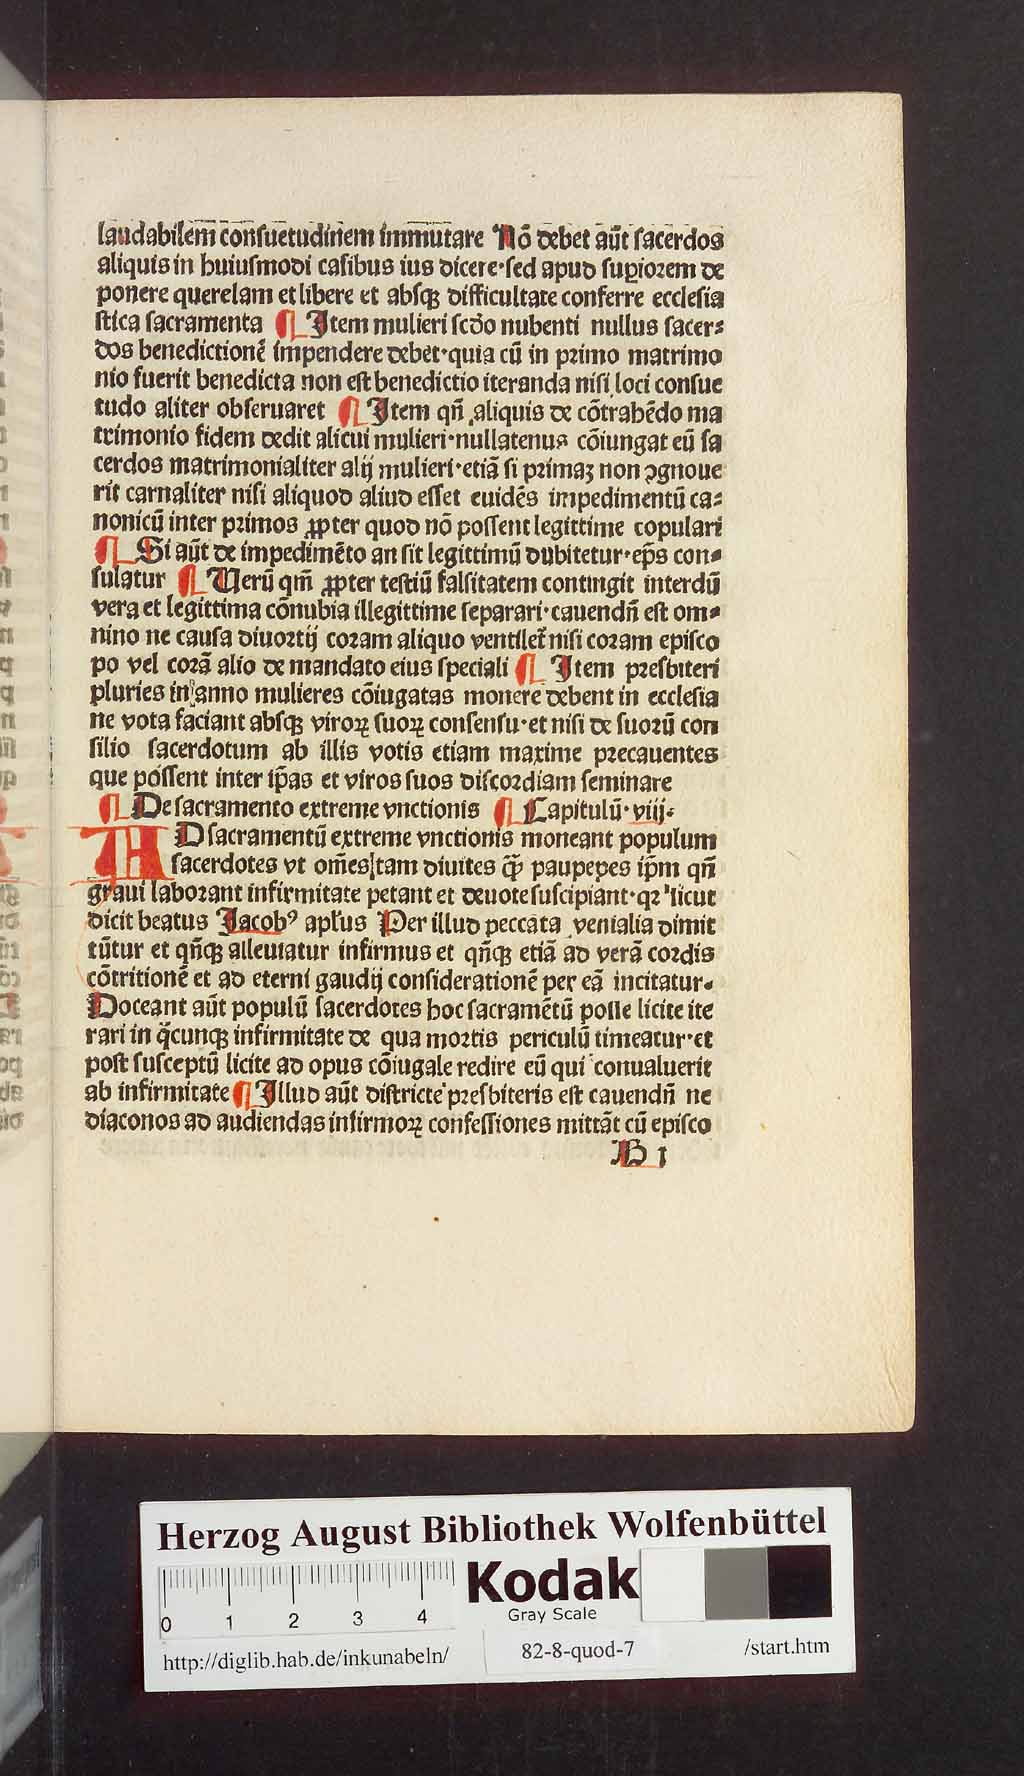 laudabilem̄ consuetudinem immutare Nō debet aūt sacerdos
aliquis in huiusmodi casibus ius dicere·sed apud sup̱iorem de
ponere querelam et libere et absqꝫ difficultate conferre ecclesia
stica sacramenta ¶ Item mulieri scd̄o nubenti nullus sacer⸗
dos benedictionē impendere debet·quia cū in primo matrimo
nio fuerit benedicta non est benedictio iteranda nisi loci consue
tudo aliter obseruaret ¶ Item qn̄ aliquis de cōtrahēdo ma
trimonio fidem dedit alicui mulieri·nullatenus cōiungat eū sa
cerdos matrimonialiter alij mulieri·etiā si primaꝫ non ꝯgnoue
rit carnaliter nisi aliquod aliud esset euidēs impedimentū ca⸗
nonicū inter primos ꝓpter quod nō possent legittime copulari
¶ Si aūt de impedimēto an sit legittimū dubitetur·ep̄s con⸗
sulatur ¶ Uerū qm̄ ꝓpter testiū falsitatem contingit interdū
vera et legittima cōnubia illegittime separari·cauendn̄ est om⸗
nino ne causa diuortij coram aliquo ventilet̄ nisi coram episco
po vel corā alio de mandato eius speciali ¶ Item presbiteri
pluries in anno mulieres cōiugatas monere debent in ecclesia
ne vota faciant absqꝫ viroꝝ suoꝝ consensu·et nisi de suorū con
silio sacerdotum ab illis votis etiam maxime precauentes
que possent inter ip̄as et viros suos discordiam seminare
¶ De sacramento extreme vnctionis ¶ Capitulū·viij·
AD sacramentū extreme vnctionis moneant populum
sacerdotes vt om̄es tam diuites q̄ꝫ paupepes ip̄m qn̄
graui laborant infirmitate petant et deuote suscipiant·qꝛ sicut
dicit beatus Jacobꝰ apl̄us Per illud peccata venialia dimit
tūtur et qn̄qꝫ alleuiatur infirmus et qn̄qꝫ etiā ad verā cordis
cōtritionē et ad eterni gaudij considerationē per eā incitatur·
Doceant aūt populū sacerdotes hoc sacramētū posse licite ite
rari in q̄cunqꝫ infirmitate de qua mortis periculū timeatur·et
post susceptū licite ad opus cōiugale redire eū qui conualuerit
ab infirmitate ¶ Illud aūt districte presbiteris est cauendn̄ ne
diaconos ad audiendas infirmoꝝ confessiones mittāt cū episco
B 1
Herzog August Bibliothek Wolfenbüttel
Kodak
Gray Scale
0 1 2 3 4
http://diglib.hab.de/inkunabeln/ 82-8-quod-7 /start.htm